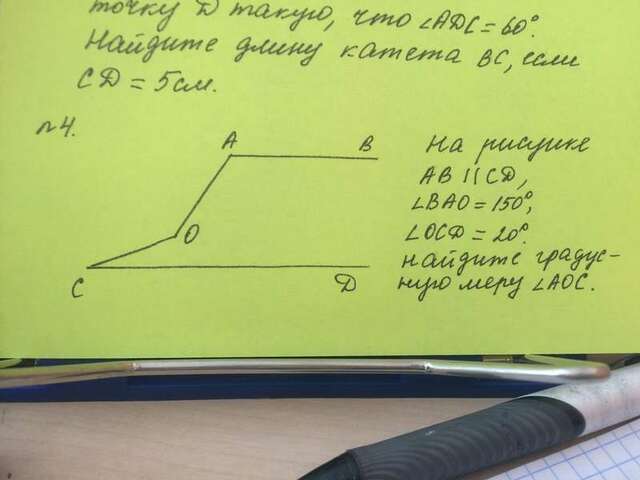 точку D такую, что ∠ADC = 60°.
Найдите длину катета BC, если
CD = 5 см.
№4.
A
B
O
C
D
На рисунке
AB || CD,
∠BAO = 150°,
∠OCD = 20°.
Найдите градус-
ную меру ∠AOC.